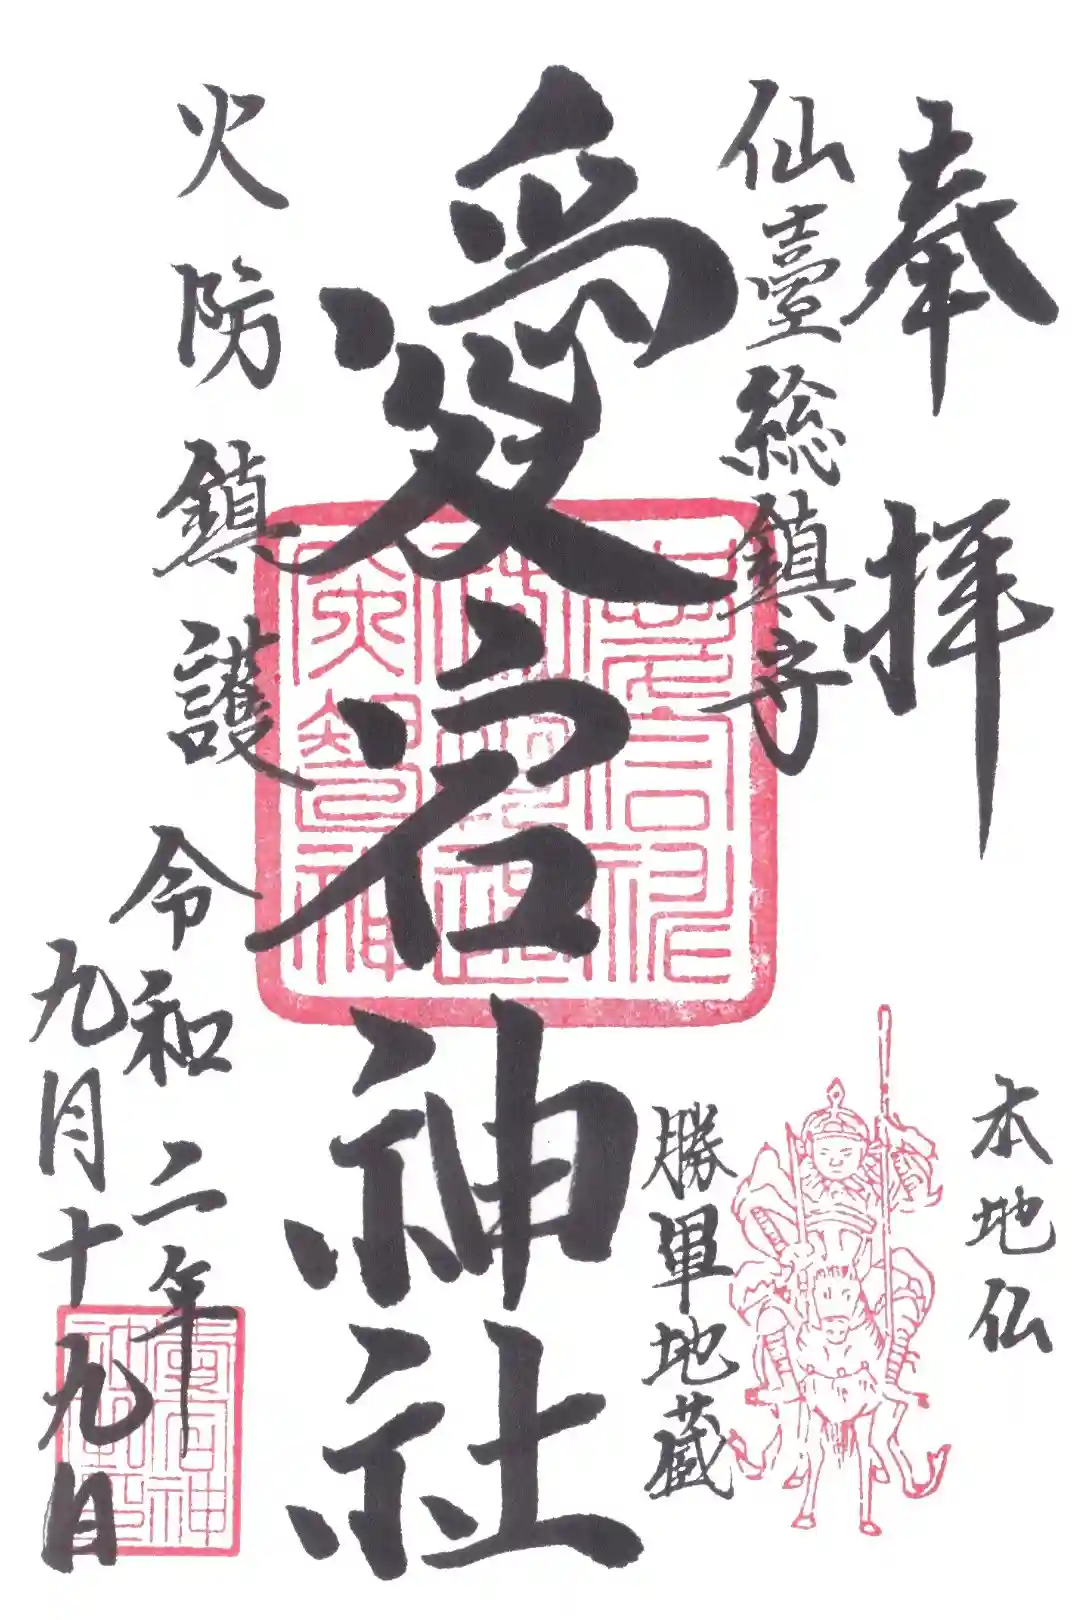 奉拝
仙臺総鎮守
本地仏
勝軍地蔵
愛宕神社
火防鎮護
令和二年
九月十九日